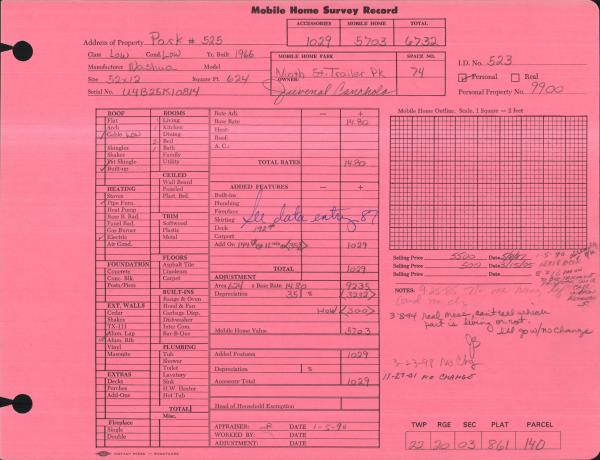 Mobile Home Survey Record
ACCESSORIES MOBILE HOME TOTAL
1029 5703 6732
Address of Property Park # 525
Class Low Cond. Low Yr. Built 1966
Manufacturer Nashua Model
Size 52x12 Square Ft. 624
Serial No. U4B25K10814
MOBILE HOME PARK SPACE NO.
Ninth St. Trailer Pk 74
OWNER:
Juvenal
I.D. No. 523
Personal Real
Personal Property No. 9900
ROOF
Flat
Arch
Gable Low
Shingles
Shakes
Pet Shingle
Built-up
HEATING
Stoves
Pipe Furn.
Heat Pump
Base B. Rad.
Panel Rad.
Gas Burner
Electric
Air Cond.
FOUNDATION
Concrete
Conc. Blk.
Posts/Piers
EXT. WALLS
Cedar
Shakes
TX-111
Alum. Lap
Alum. Rib
Vinyl
Masonite
EXTRAS
Decks
Porches
Add-Ons
Fireplace
Single
Double
ROOMS
Living
Kitchen
Dining
2 Bed
1 Bath
Family
Utility
CEILED
Wall Board
Paneled
Plast. Brd.
TRIM
Softwood
Plastic
Metal
FLOORS
Asphalt Tile
Linoleum
Carpet
BUILT-INS
Range & Oven
Hood & Fan
Garbage Disp.
Dishwasher
Inter Com.
Bar-B-Que
PLUMBING
Tub
Shower
Toilet
Lavatory
Sink
H.W. Heater
Hot Tub
TOTAL
Misc.
Rate Adj. — +
Base Rate 14.80
Heat:
Roof:
A. C.:
TOTAL RATES 14.80
ADDED FEATURES — +
Built-ins
Plumbing
Fireplace
Skirting See data entry 87
Deck 192#
Carport
Add On 1029
TOTAL 1029
ADJUSTMENT
Area 624 x Base Rate 14.80 9235
Depreciation 35 % (3232)
(300)
Mobile Home Value 5703
Added Features 1029
Depreciation %
Accessories Total 1029
Head of Household Exemption
APPRAISER: DATE 1-5-90
WORKED BY: DATE
ADJUSTMENT: DATE
Mobile Home Outline. Scale, 1 Square — 2 feet
Selling Price 5500 Date
Selling Price 500 Date
Selling Price Date
1-5-90
NOTES: 9-25-85
3-8-94 real mess, can't tell which
part is living or not.
will go w/no change
3-23-98 No Chg
11-27-01 NO CHANGE
TWP RGE SEC PLAT PARCEL
22 20 03 861 140